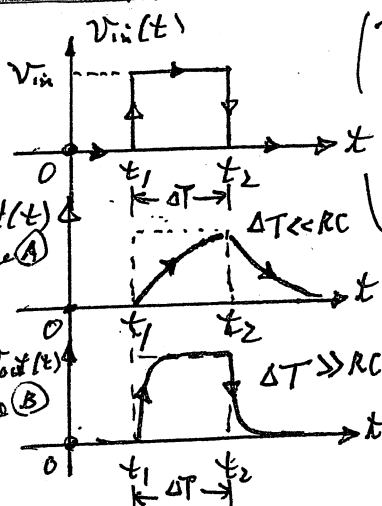 Vin(t)
Vin
0 t1 t2 t
ΔT
t(t)
A
ΔT<<RC
0 t1 t2 t
out(t)
B
ΔT>>RC
0 t1 t2 t
ΔT